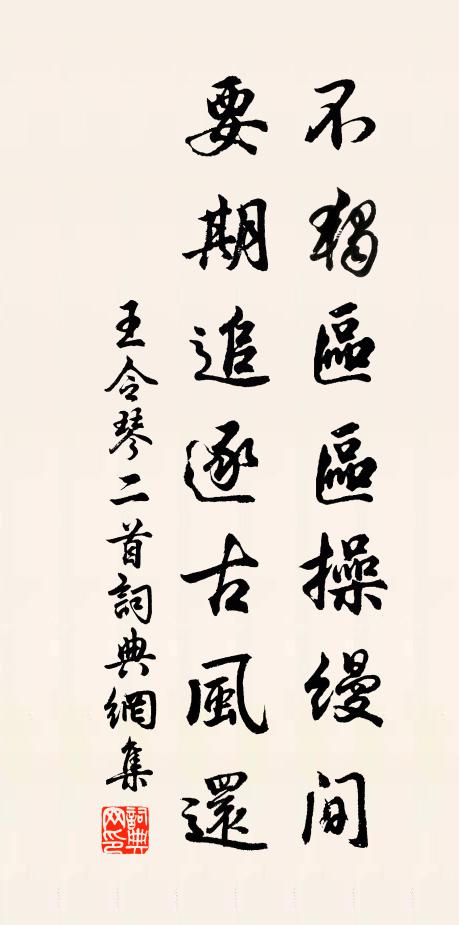 不獨區區操縵間
要期追逐古風還
王令琴二首詞典網集
詞典网印